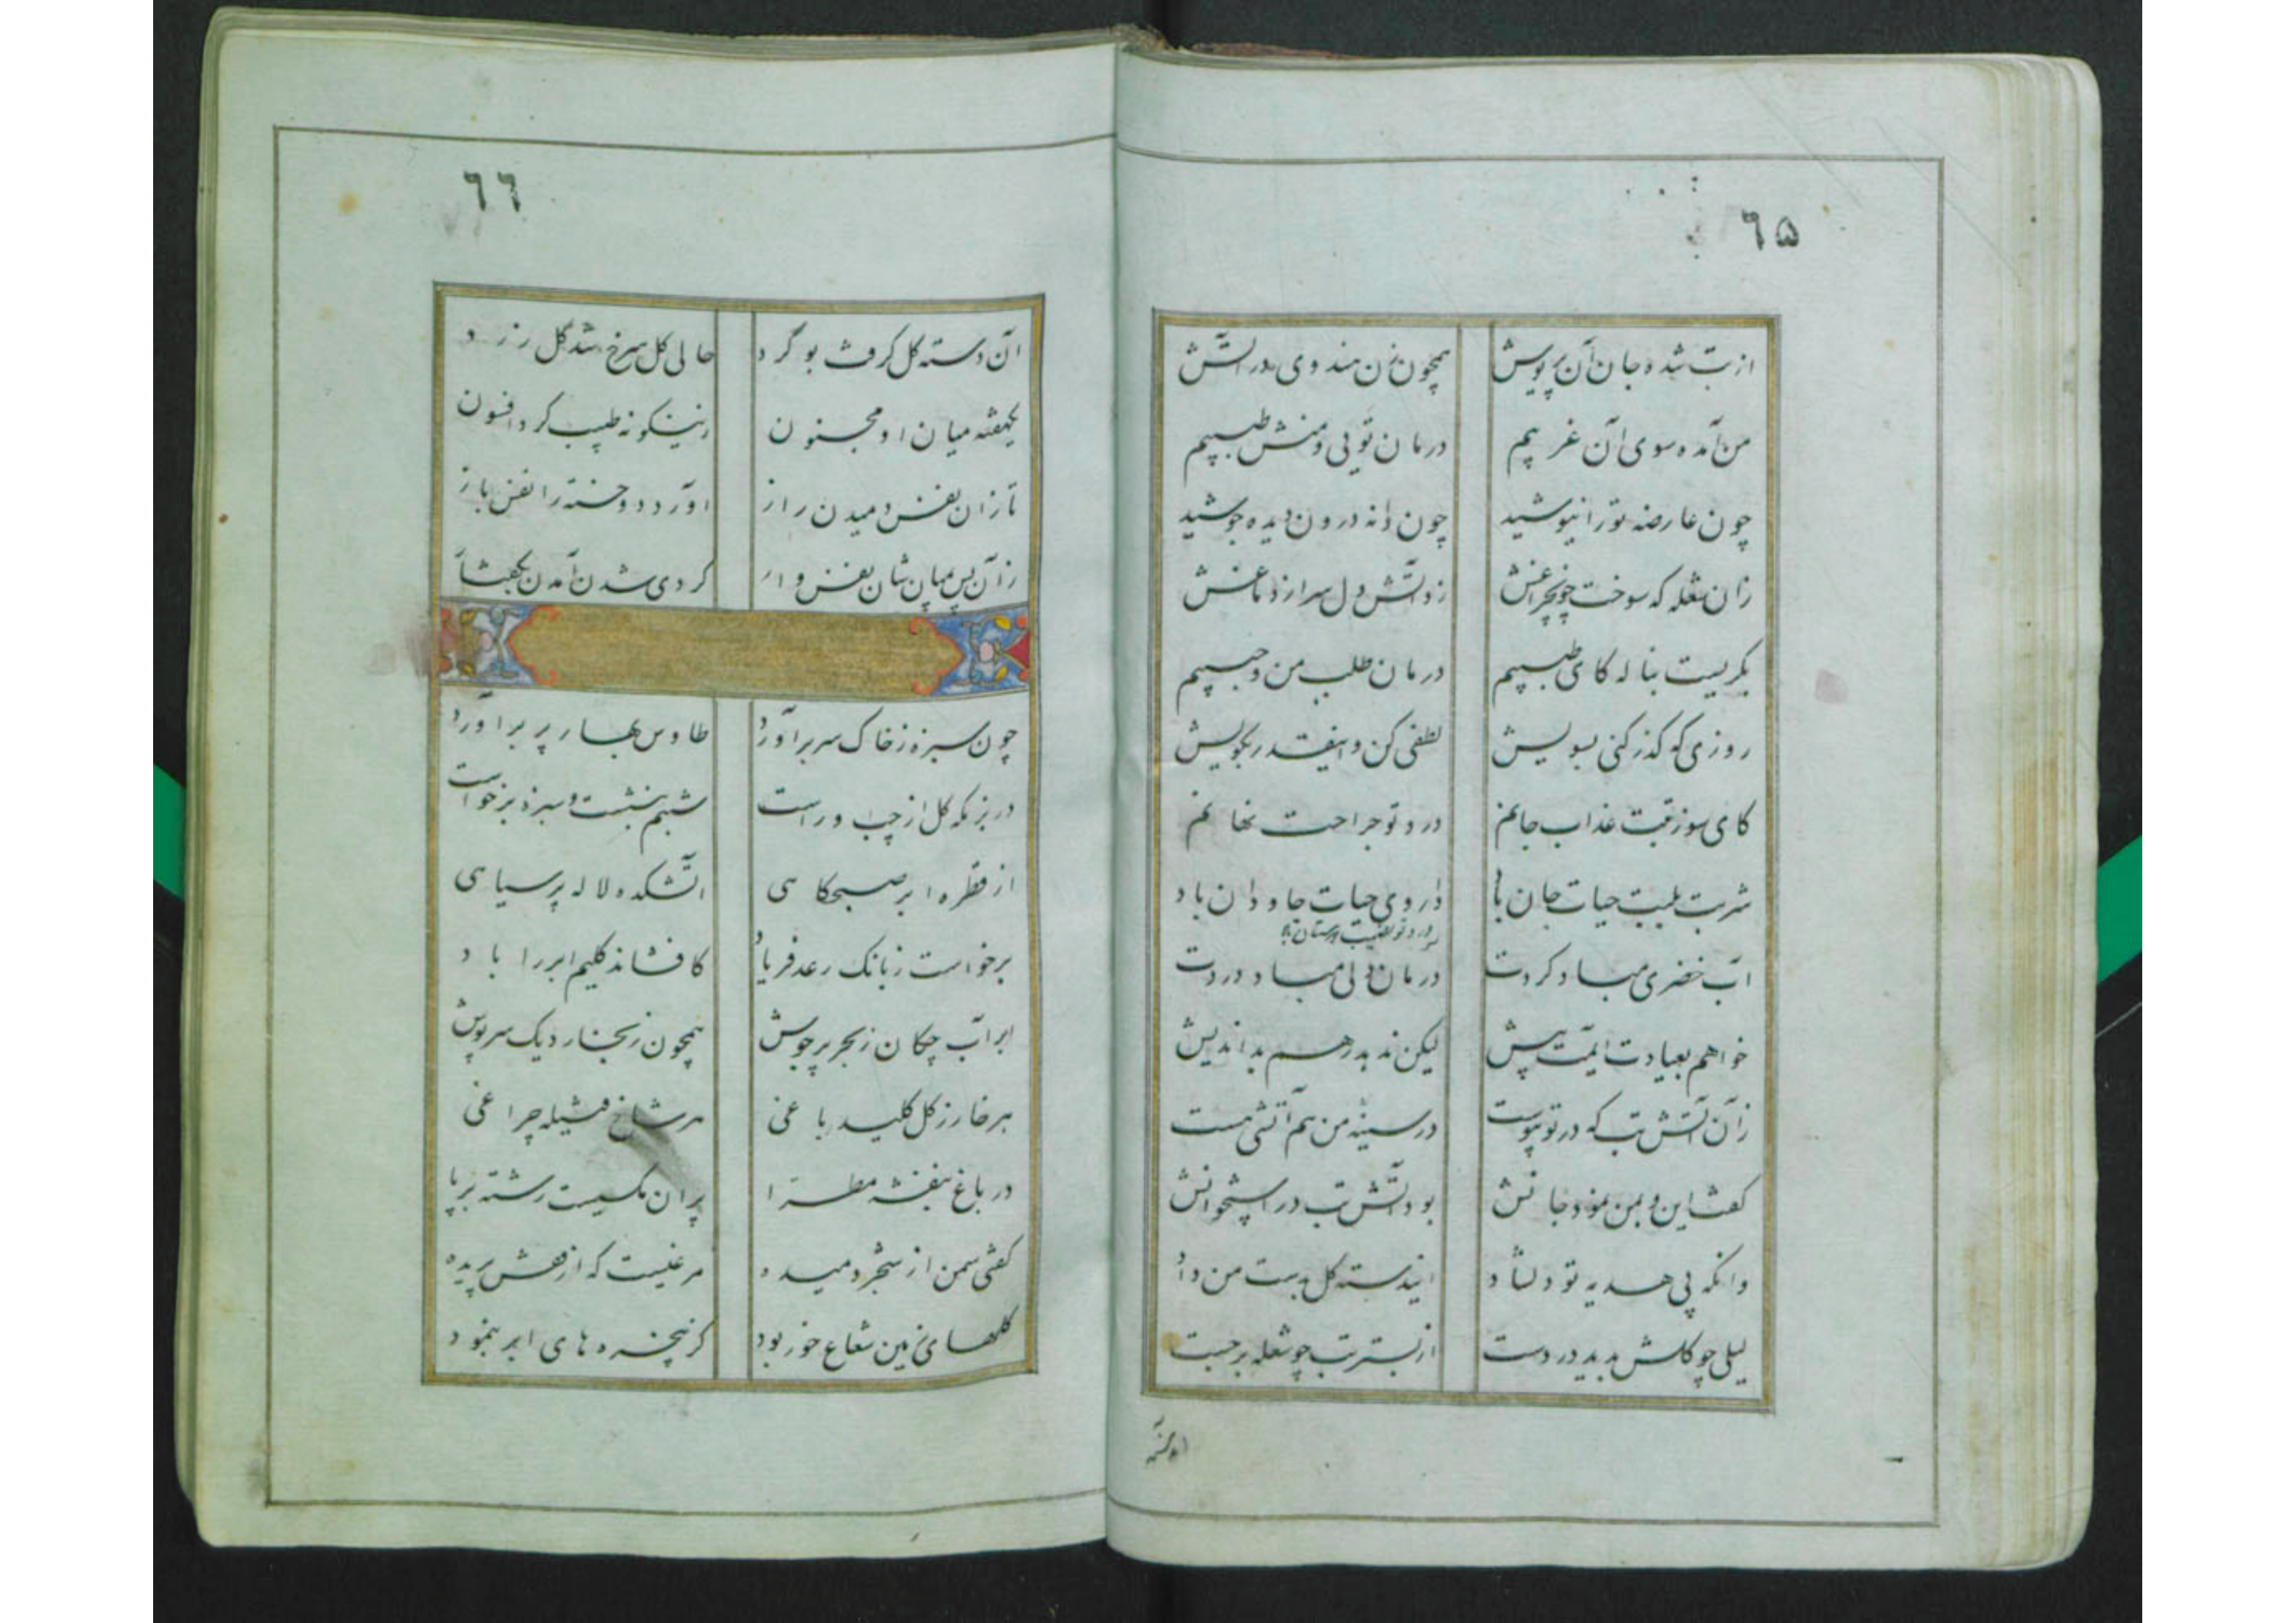 ٦۵
از تب شده جان آن پریوش همچون زن هندوی در آتش
من آمده سوی آن غریبم درمان تویی و منش طبیبم
چون عارضه تو را نیوشید چون دانه درون دیده جوشید
زان شعله که سوخت چون چراغش زد آتش دل سر از دماغش
بگریست بناله کای طبیبم درمان طلب من و حبیبم
روزی که گذر کنی بسویش لطفی کن و اینقدر بگویش
کای سوز تبت عذاب جانم درد تو جراحت نهانم
شربت بلبت حیات جان باد داروی حیات جاودان باد
درد تو نصیب دوستان باد
آب خضری مباد کردت درمان دلی مباد دردت
خواهم بعیادت ایمت پیش لیکن ندهد رهم بداندیش
زآن آتش تب که در تو پیوست در سینه من هم آتشی هست
گفت این و بمن نمود جانش بود آتش تب در استخوانش
وانگه پی هدیه تو دلشاد ایندسته گل بدست من داد
لیلی چو گلش بدید در دست از بستر تب چو شعله برجست
٦٦
آن دسته گل گرفت بو کرد حالی گل سرخ شد گل زرد
یکهفته میان او و مجنون زینگونه طبیب کرد افسون
تا زان نفس دمیدن راز آورد دو خسته را نفس باز
زآن پس میان شان نفس وار کردی شدن آمدن
چون سبزه ز خاک سر برآورد طاوس بهار پر برآورد
در بزمگه گل از چپ و راست شبنم بنشست و سبزه برخواست
از قطره ابر صبحگاهی آتشکده لاله پر سیاهی
برخواست ز بانک رعد فریاد کافشاند گلیم ابر را باد
ابر آب چکان ز بحر پرجوش همچون ز بخار دیک سرپوش
هر خار ز گل کلید باغی هر شاخ فتیله چراغی
در باغ بنفشه مطرا پران مکسیست رشته بر پا
گفتی سمن از شجر دمیده مرغیست که از قفس پریده
گلهای زمین شعاع خور بود کز پنجره های ابر بنمود